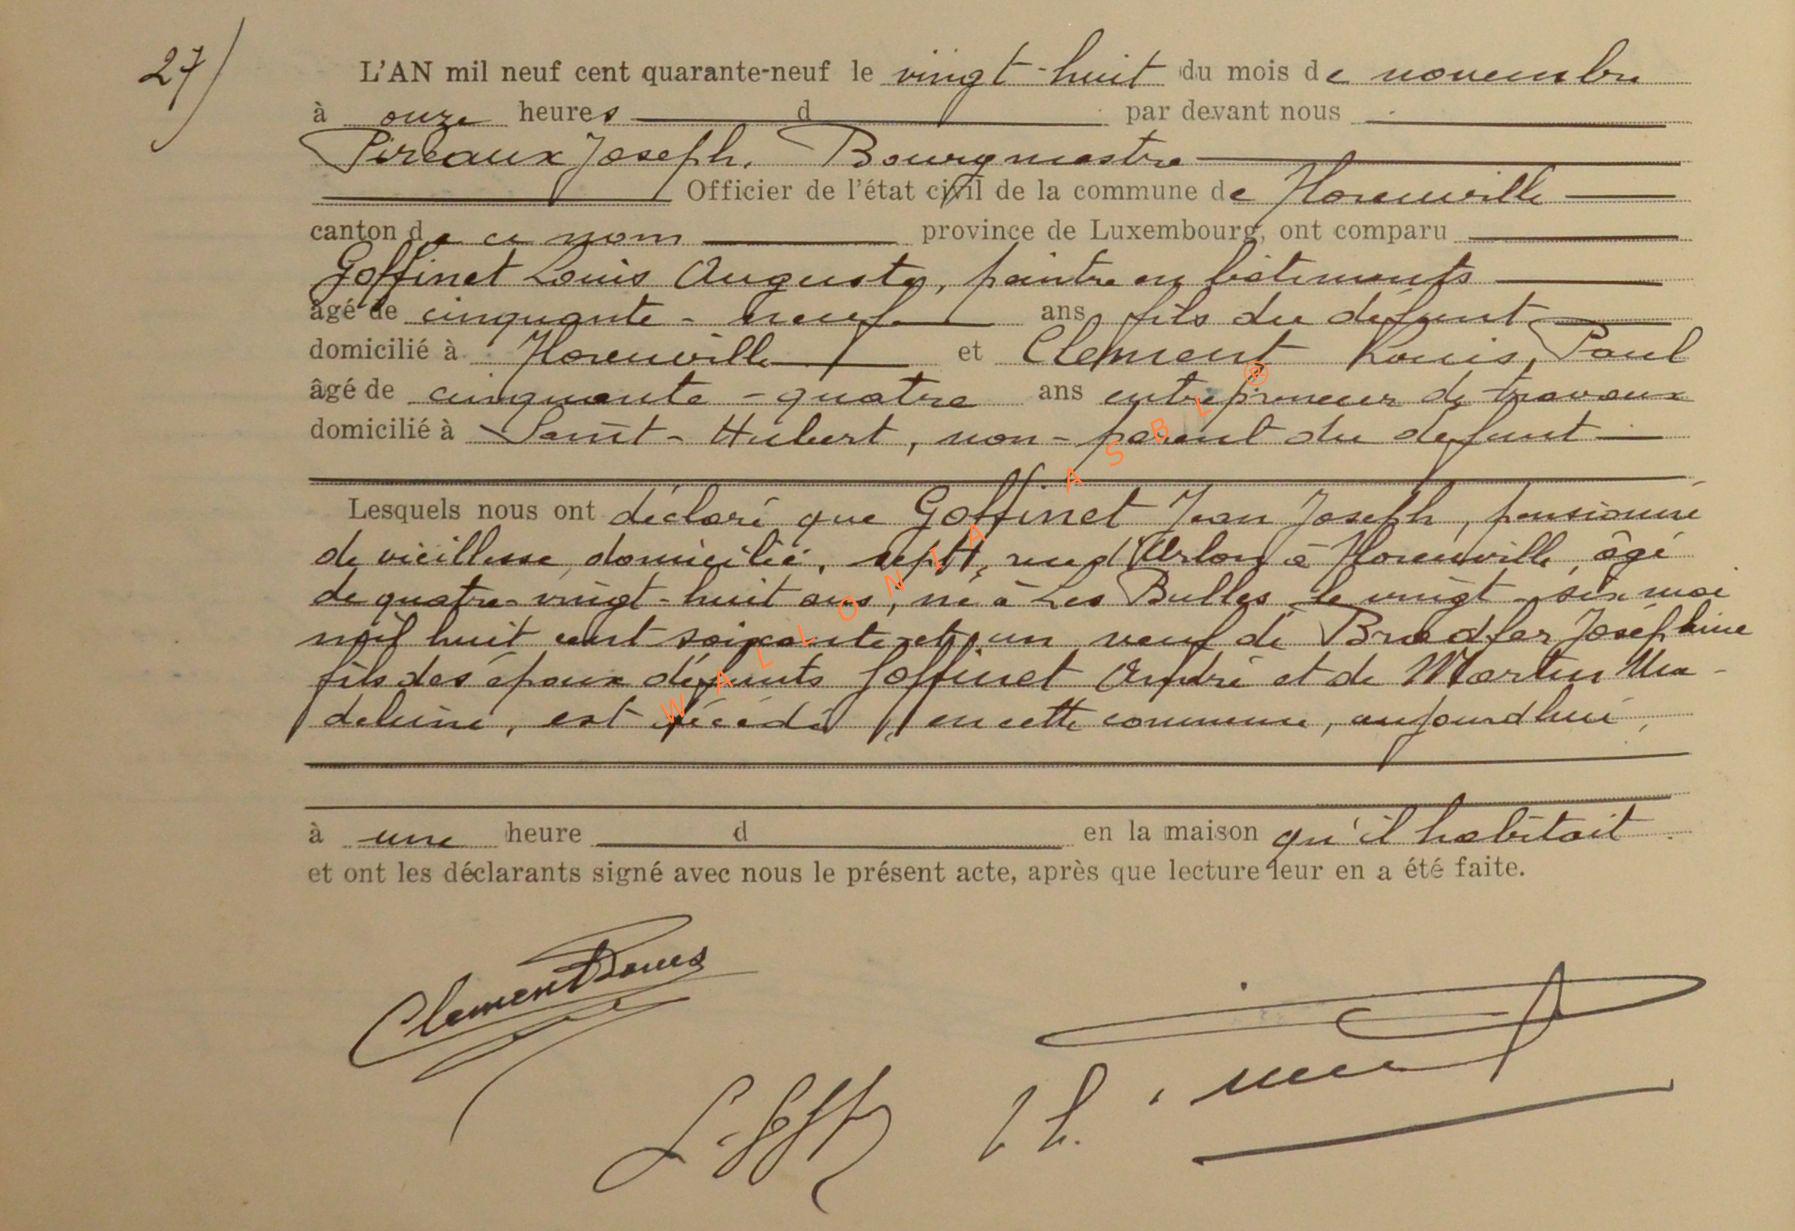 27)
L'AN mil neuf cent quarante-neuf le vingt-huit du mois de novembre
à onze heures d par devant nous
Pireaux Joseph, Bourgmestre
Officier de l'état civil de la commune de Florenville
canton de ce nom province de Luxembourg, ont comparu
Goffinet Louis Auguste, peintre en bâtiments
âgé de cinquante-neuf ans fils du défunt
domicilié à Florenville et Clement Louis, Paul
âgé de cinquante-quatre ans entrepreneur de travaux
domicilié à Saint-Hubert, non-parent du défunt
Lesquels nous ont déclaré que Goffinet Jean Joseph, pensionné
de vieillesse, domicilié, sept, rue d'Arlon à Florenville, âgé
de quatre-vingt-huit ans, né à Les Bulles, le vingt-six mai
mil huit cent soixante et un veuf de Bradfer Joséphine
fils des époux défunts Goffinet André et de Martin Ma-
deleine, est décédé, en cette commune, aujourd'hui,
à une heure d en la maison qu'il habitait.
et ont les déclarants signé avec nous le présent acte, après que lecture leur en a été faite.
Clement Louis
L. Goff
WALLONIA ASBL ®